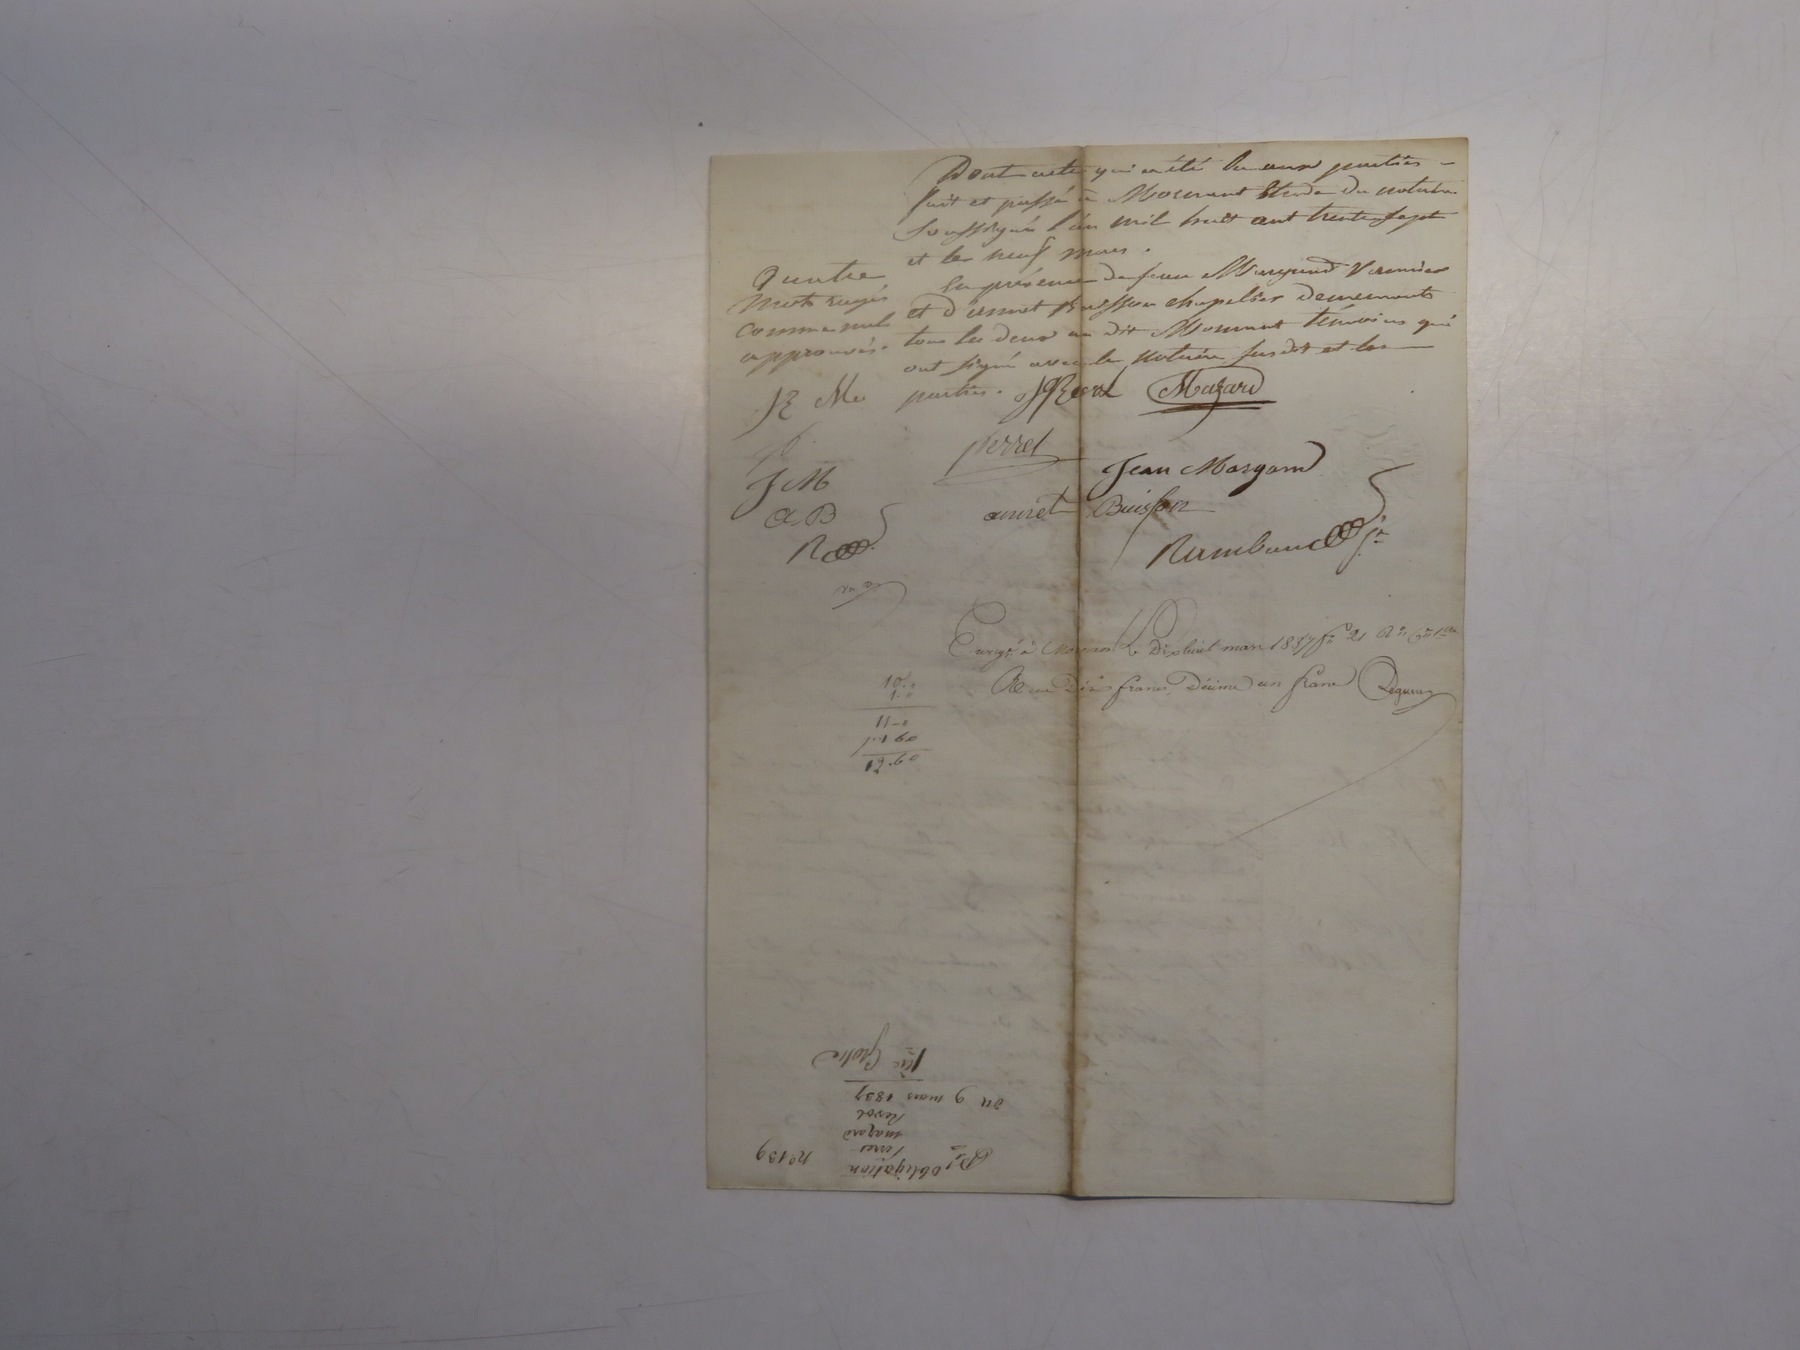 Dont acte qui a été lu aux parties
fait et passé à Mornant Etude du notaire
soussigné l'an mil huit cent trente sept
et le neuf mars.
En présence de sieur Margand Vannier
et d'annet Buisson chapelier demeurants
tous les deux au dit Mornant témoins qui
ont signé avec le notaire susdit et les
parties. Mazard
Quatre
mots rayés
comme nuls
approuvés.
perret
Jean Margand
annet Buisson
Rambaud
J M
a. B
R
Enregé à Mornant le Dix huit mars 1837 fo 21
Reçu Dix francs, Décime un franc
10.0
1.0
11-0
1.60
12.60
No 139
Obligation
Perret
mazard
Revol
du 9 mars 1837
1ère Grosse